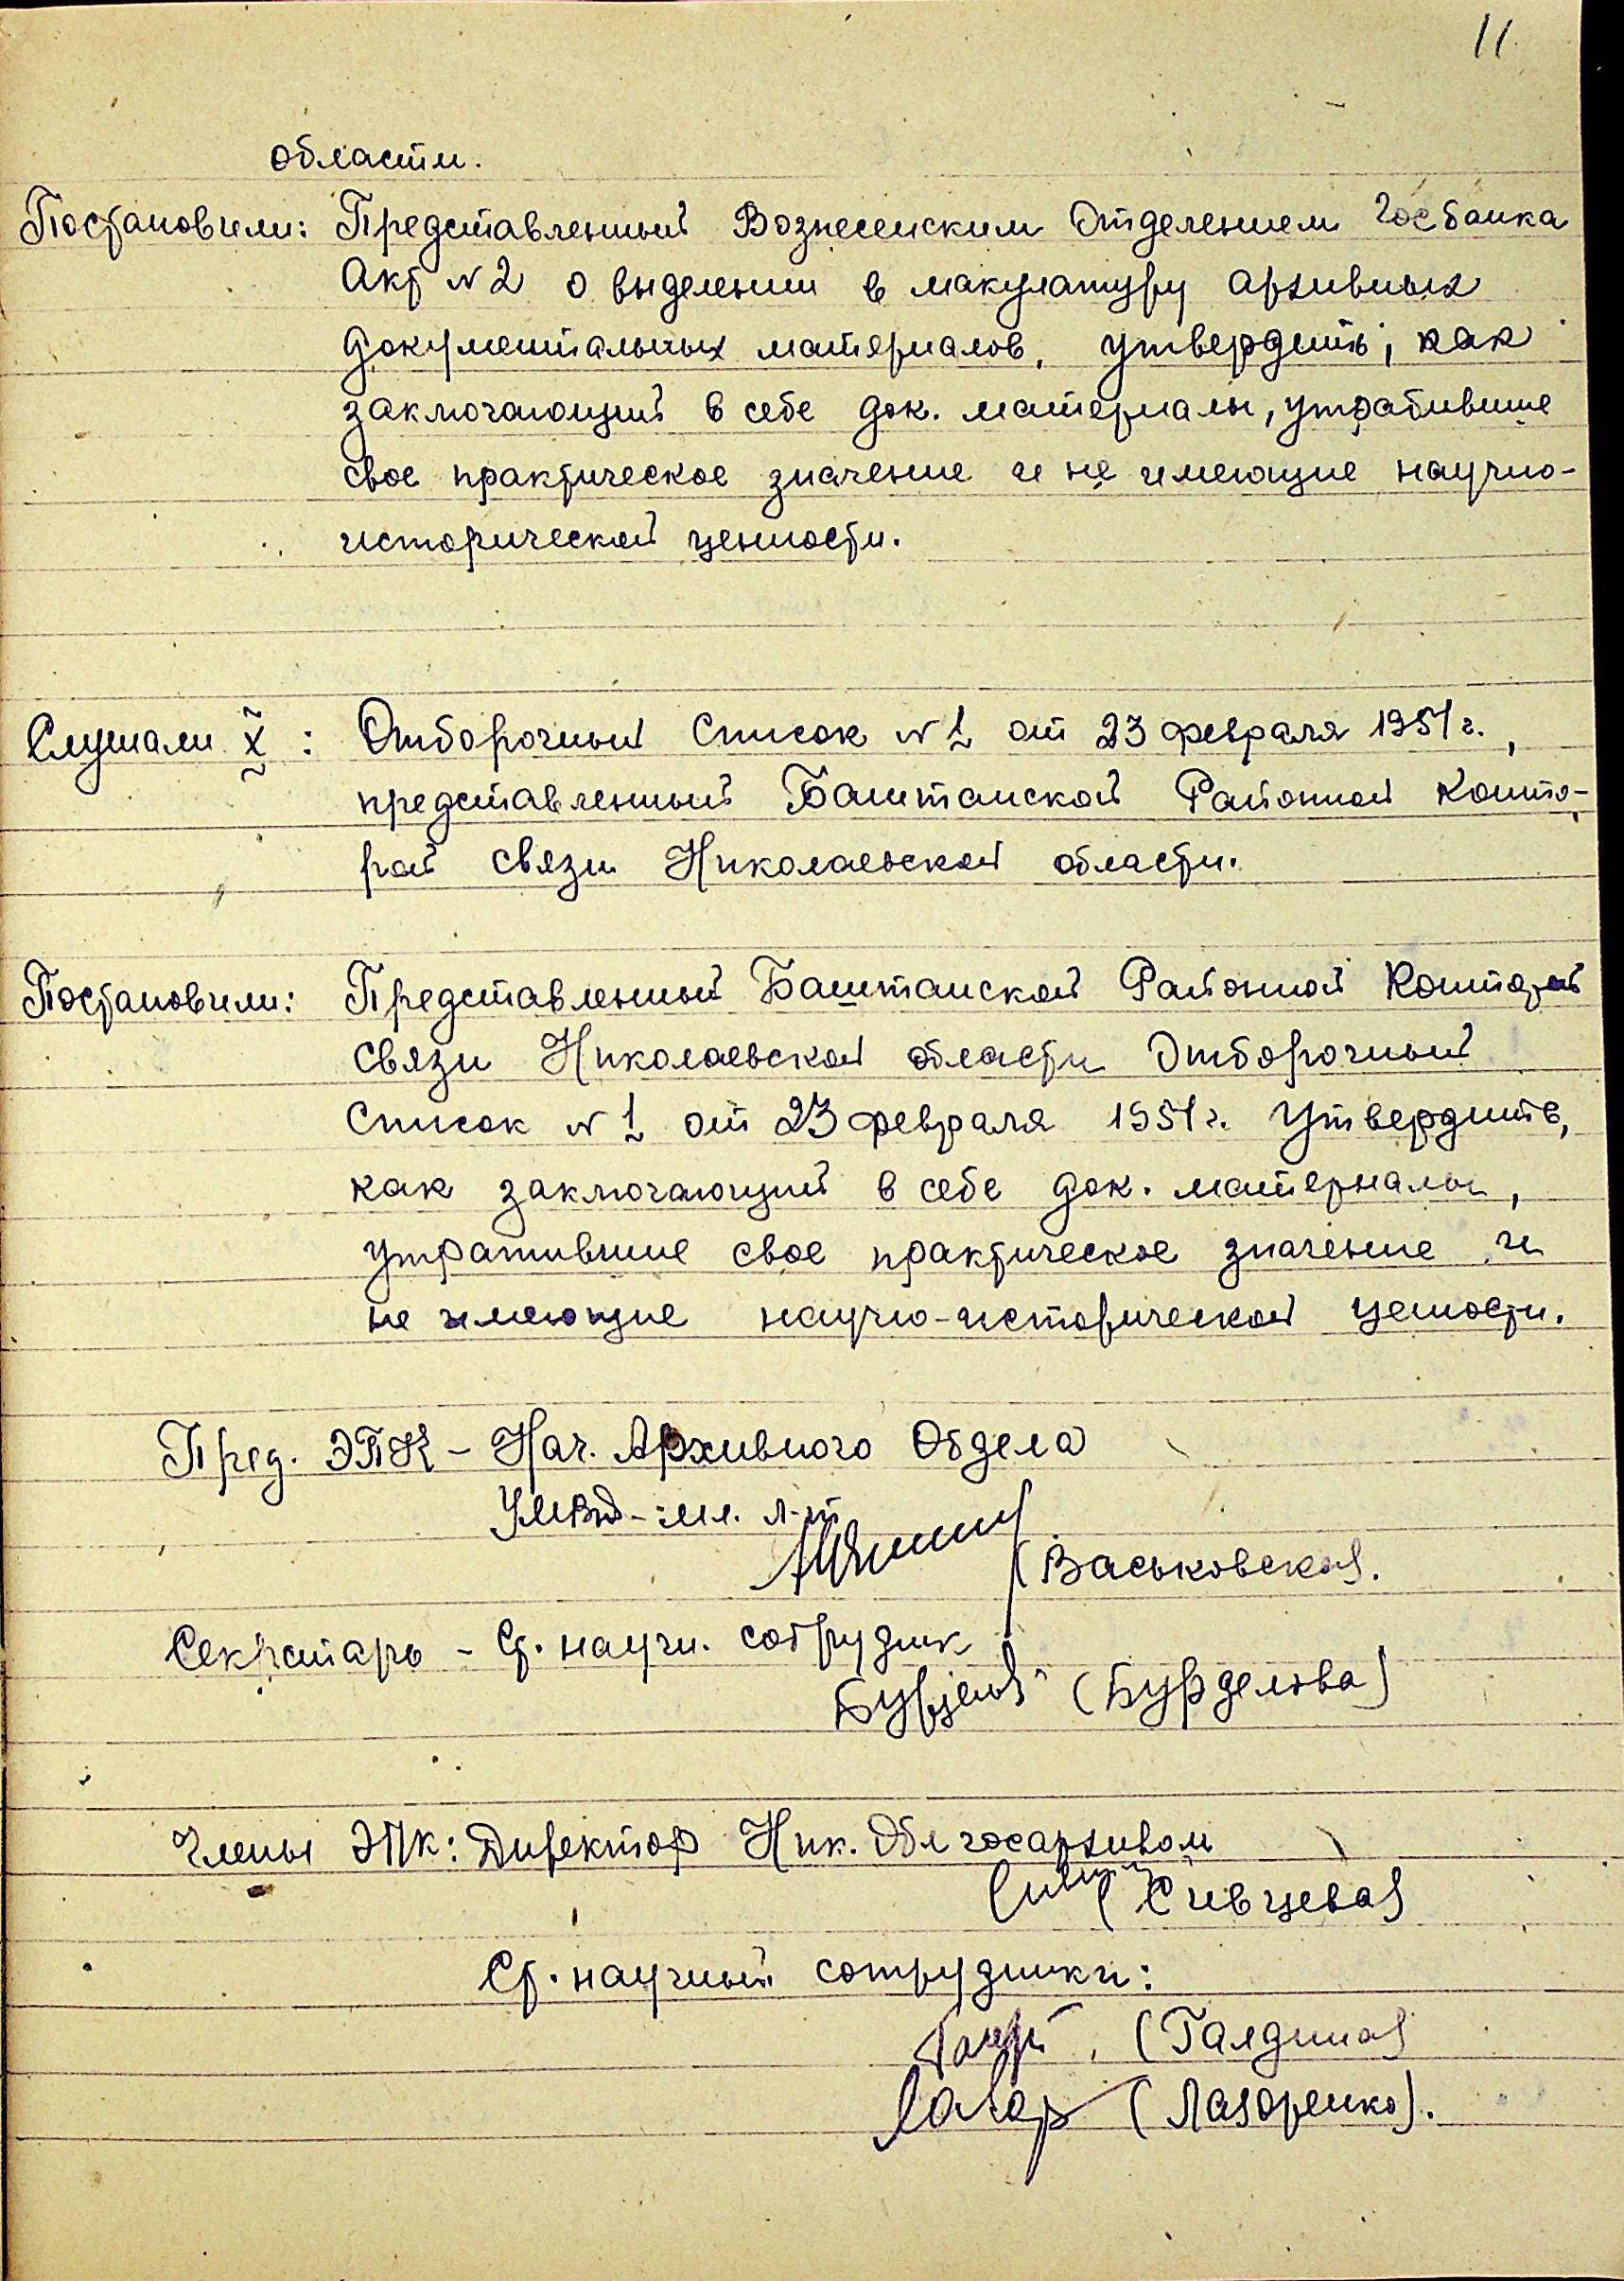 11
области.
Постановили: Представленный Вознесенским Отделением Госбанка
Акт N2 о выделении в макулатуру архивных
документальных материалов, утвердить, как
заключающий в себе док. материалы, утратившие
свое практическое значение и не имеющие научно-
исторической ценности.
Слушали X: Отборочный Список N1 от 23 февраля 1951г.,
представленный Баштанской Районной Конто-
рой связи Николаевской области.
Постановили: Представленный Баштанской Районной Конторой
связи Николаевской области Отборочный
Список N1 от 23 февраля 1951г. Утвердить,
как заключающий в себе док. материалы,
утратившие свое практическое значение и
не имеющие научно-исторической ценности.
Пред. ЭПК - Нач. Архивного Отдела
УМВД - мл. л-т
(Васьковская).
Секретарь - Ст. научн. сотрудник
(Бурделова)
Члены ЭПК: Директор Ник. Облгосархивом
(Сивцева)
Ст. научный сотрудники:
(Галдина)
(Лазоренко).